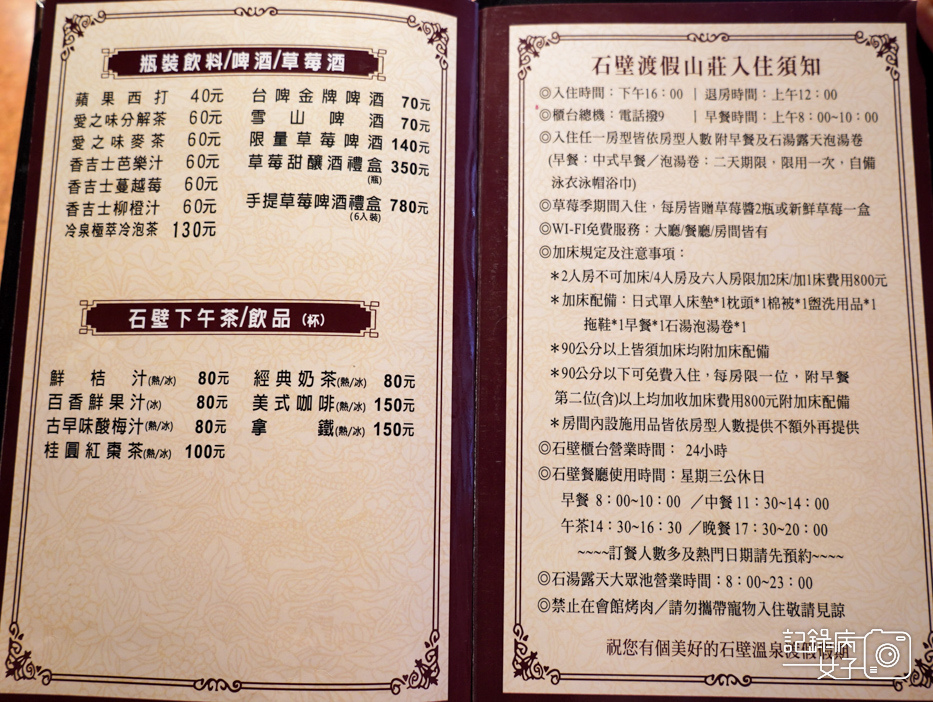 瓶裝飲料/啤酒/草莓酒
蘋果西打 40元
愛之味分解茶 60元
愛之味麥茶 60元
香吉士芭樂汁 60元
香吉士蔓越莓 60元
香吉士柳橙汁 60元
冷泉極萃冷泡茶 130元
台啤金牌啤酒 70元
雪山啤酒 70元
限量草莓啤酒 140元
草莓甜釀酒禮盒(瓶) 350元
手提草莓啤酒禮盒(6入裝) 780元
石壁下午茶/飲品(杯)
鮮桔汁(熱/冰) 80元
百香鮮果汁(冰) 80元
古早味酸梅汁(熱/冰) 80元
桂圓紅棗茶(熱/冰) 100元
經典奶茶(熱/冰) 80元
美式咖啡(熱/冰) 150元
拿鐵(熱/冰) 150元
石壁渡假山莊入住須知
◎入住時間：下午16：00 | 退房時間：上午12：00
◎櫃台總機：電話撥9 | 早餐時間：上午8：00~10：00
◎入住任一房型皆依房型人數 附早餐及石湯露天泡湯卷
(早餐：中式早餐／泡湯卷：二天期限，限用一次，自備
泳衣泳帽浴巾)
◎草莓季期間入住，每房皆贈草莓醬2瓶或新鮮草莓一盒
◎WI-FI免費服務：大廳/餐廳/房間皆有
◎加床規定及注意事項：
＊2人房不可加床/4人房及六人房限加2床/加1床費用800元
＊加床配備：日式單人床墊*1枕頭*1棉被*1盥洗用品*1
拖鞋*1早餐*1石湯泡湯卷*1
＊90公分以上皆須加床均附加床配備
＊90公分以下可免費入住，每房限一位，附早餐
第二位(含)以上均加收加床費用800元附加床配備
＊房間內設施用品皆依房型人數提供不額外再提供
◎石壁櫃台營業時間： 24小時
◎石壁餐廳使用時間：星期三公休日
早餐 8：00~10：00 ／中餐 11：30~14：00
午茶14：30~16：30 ／晚餐 17：30~20：00
~~~~訂餐人數多及熱門日期請先預約~~~~
◎石湯露天大眾池營業時間：8：00~23：00
◎禁止在會館烤肉／請勿攜帶寵物入住敬請見諒
祝您有個美好的石壁溫泉渡假假期
記錄病
女子